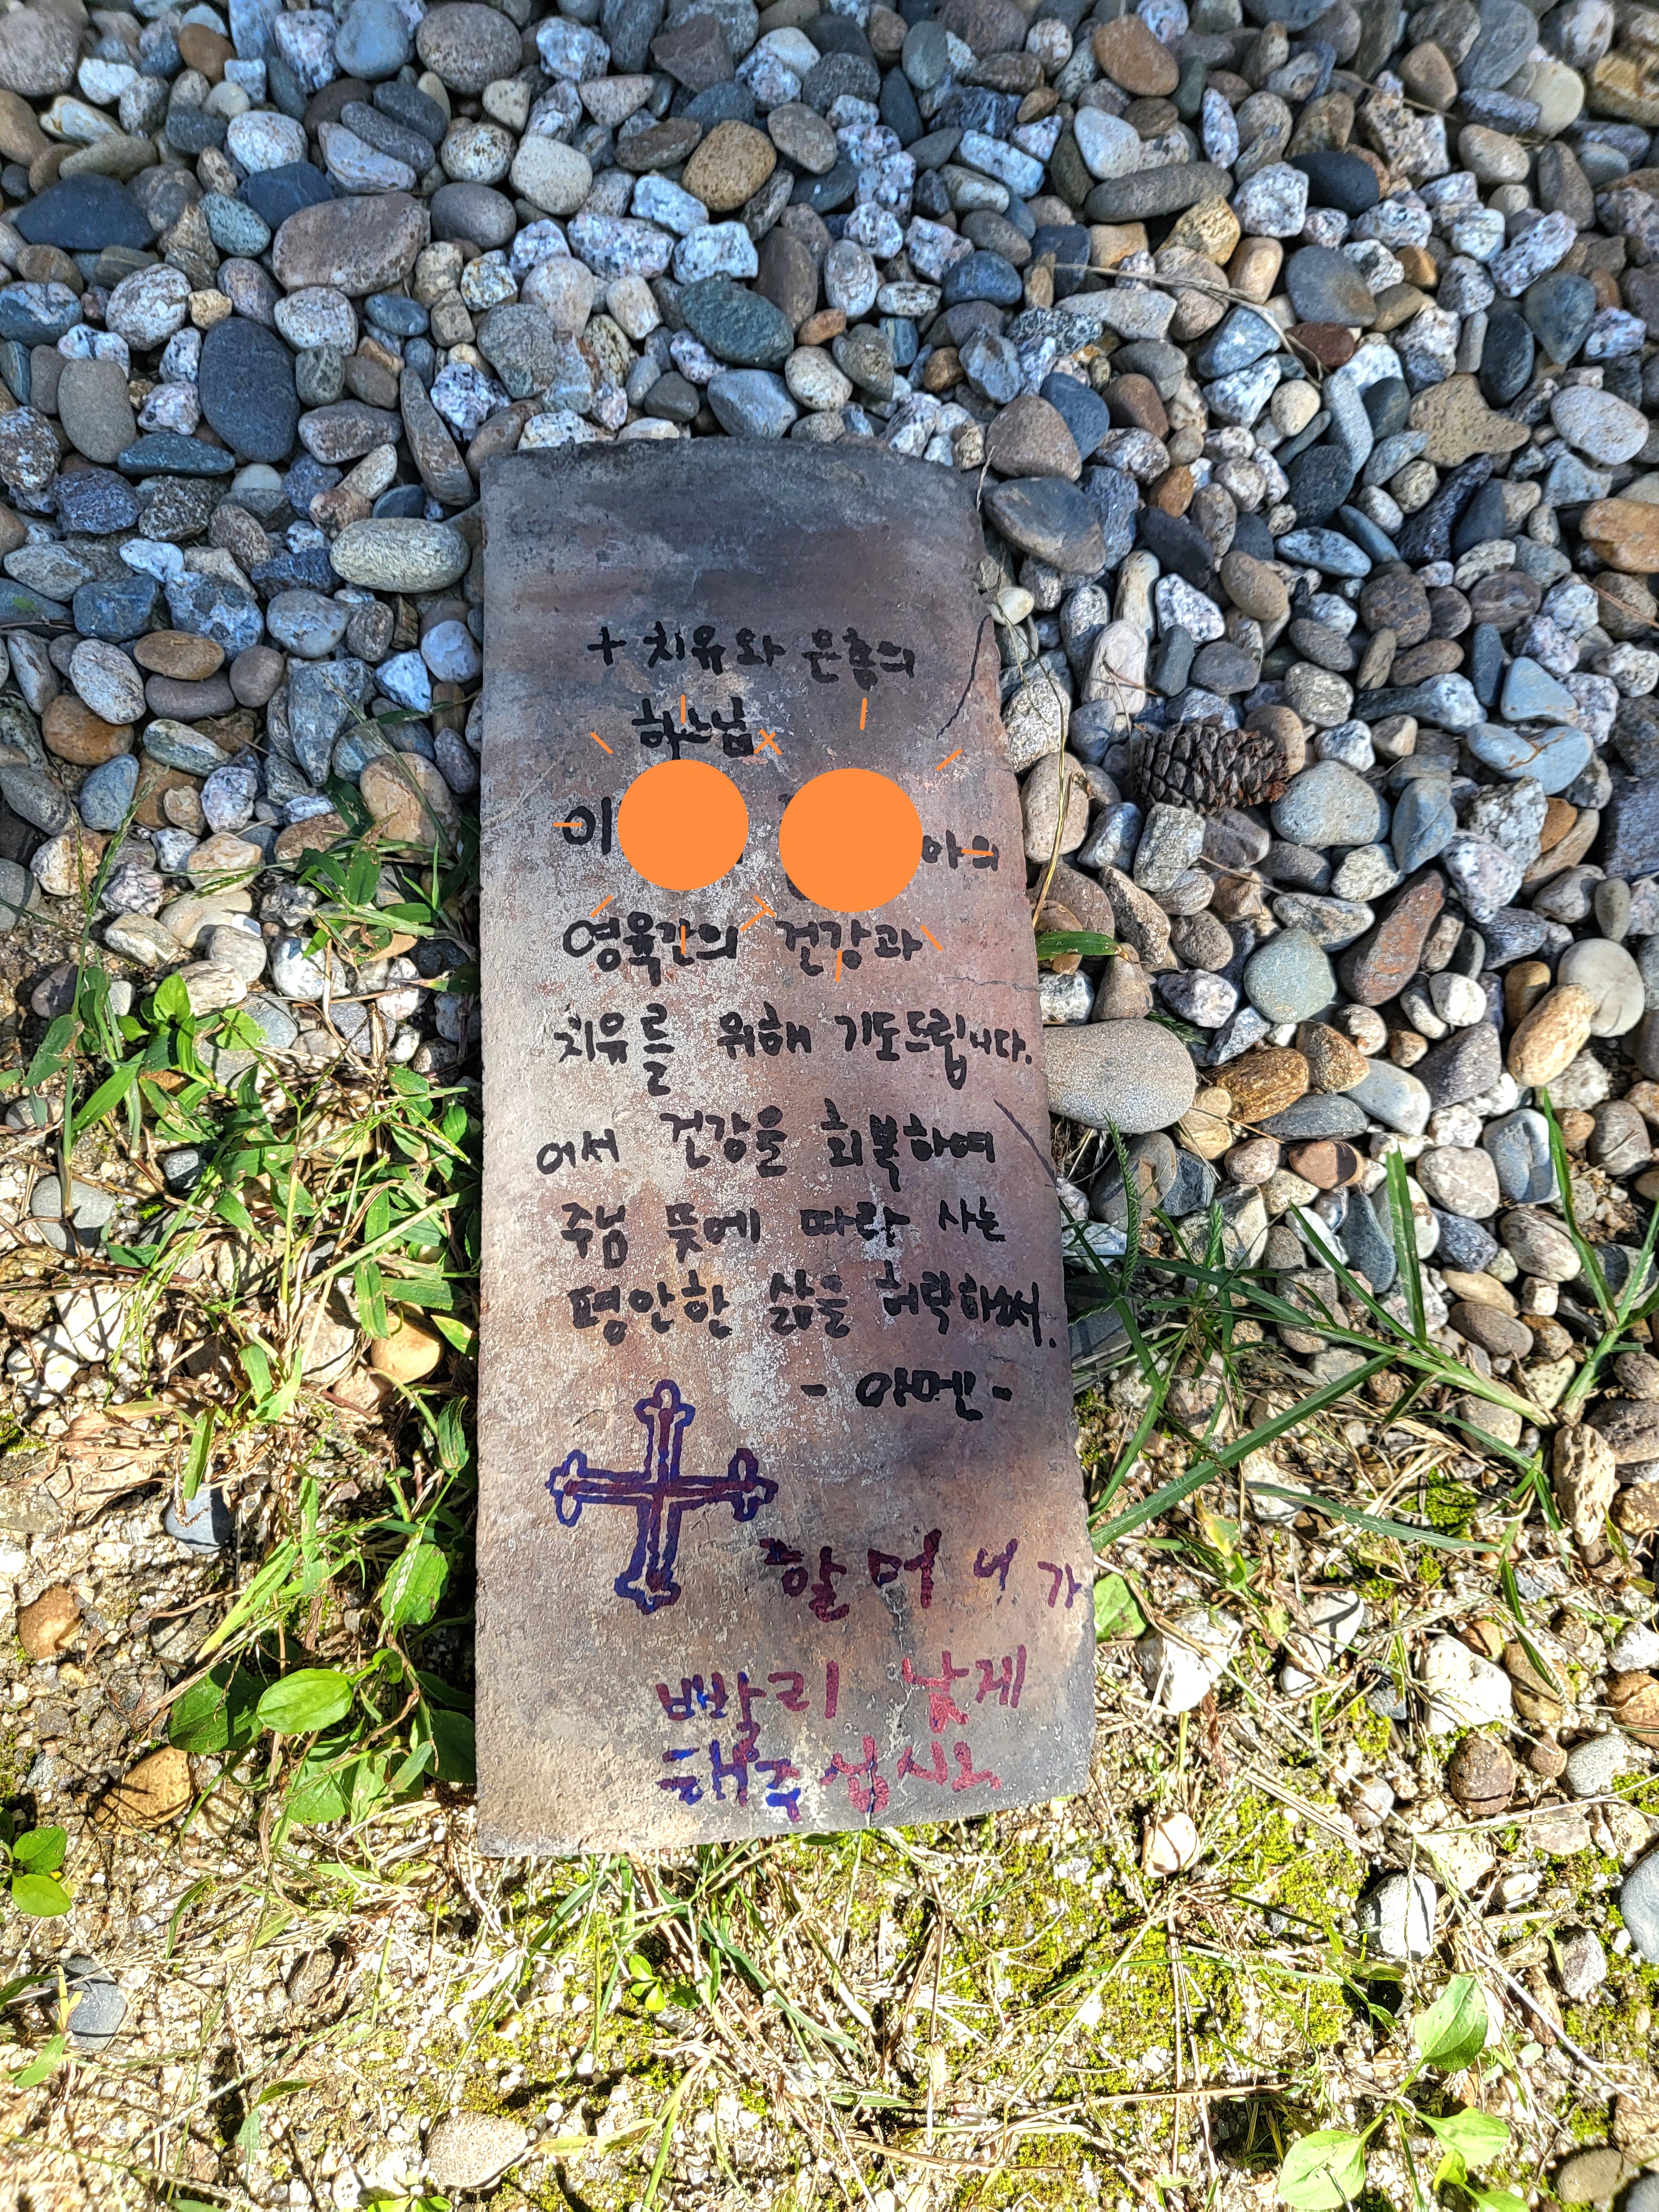 + 치유와 은총의
하느님
이 아의
영육간의 건강과
치유를 위해 기도드립니다.
어서 건강을 회복하여
주님 뜻에 따라 사는
평안한 삶을 허락하소서.
- 아멘 -
할머니가
빨리 낳게
해주십시오